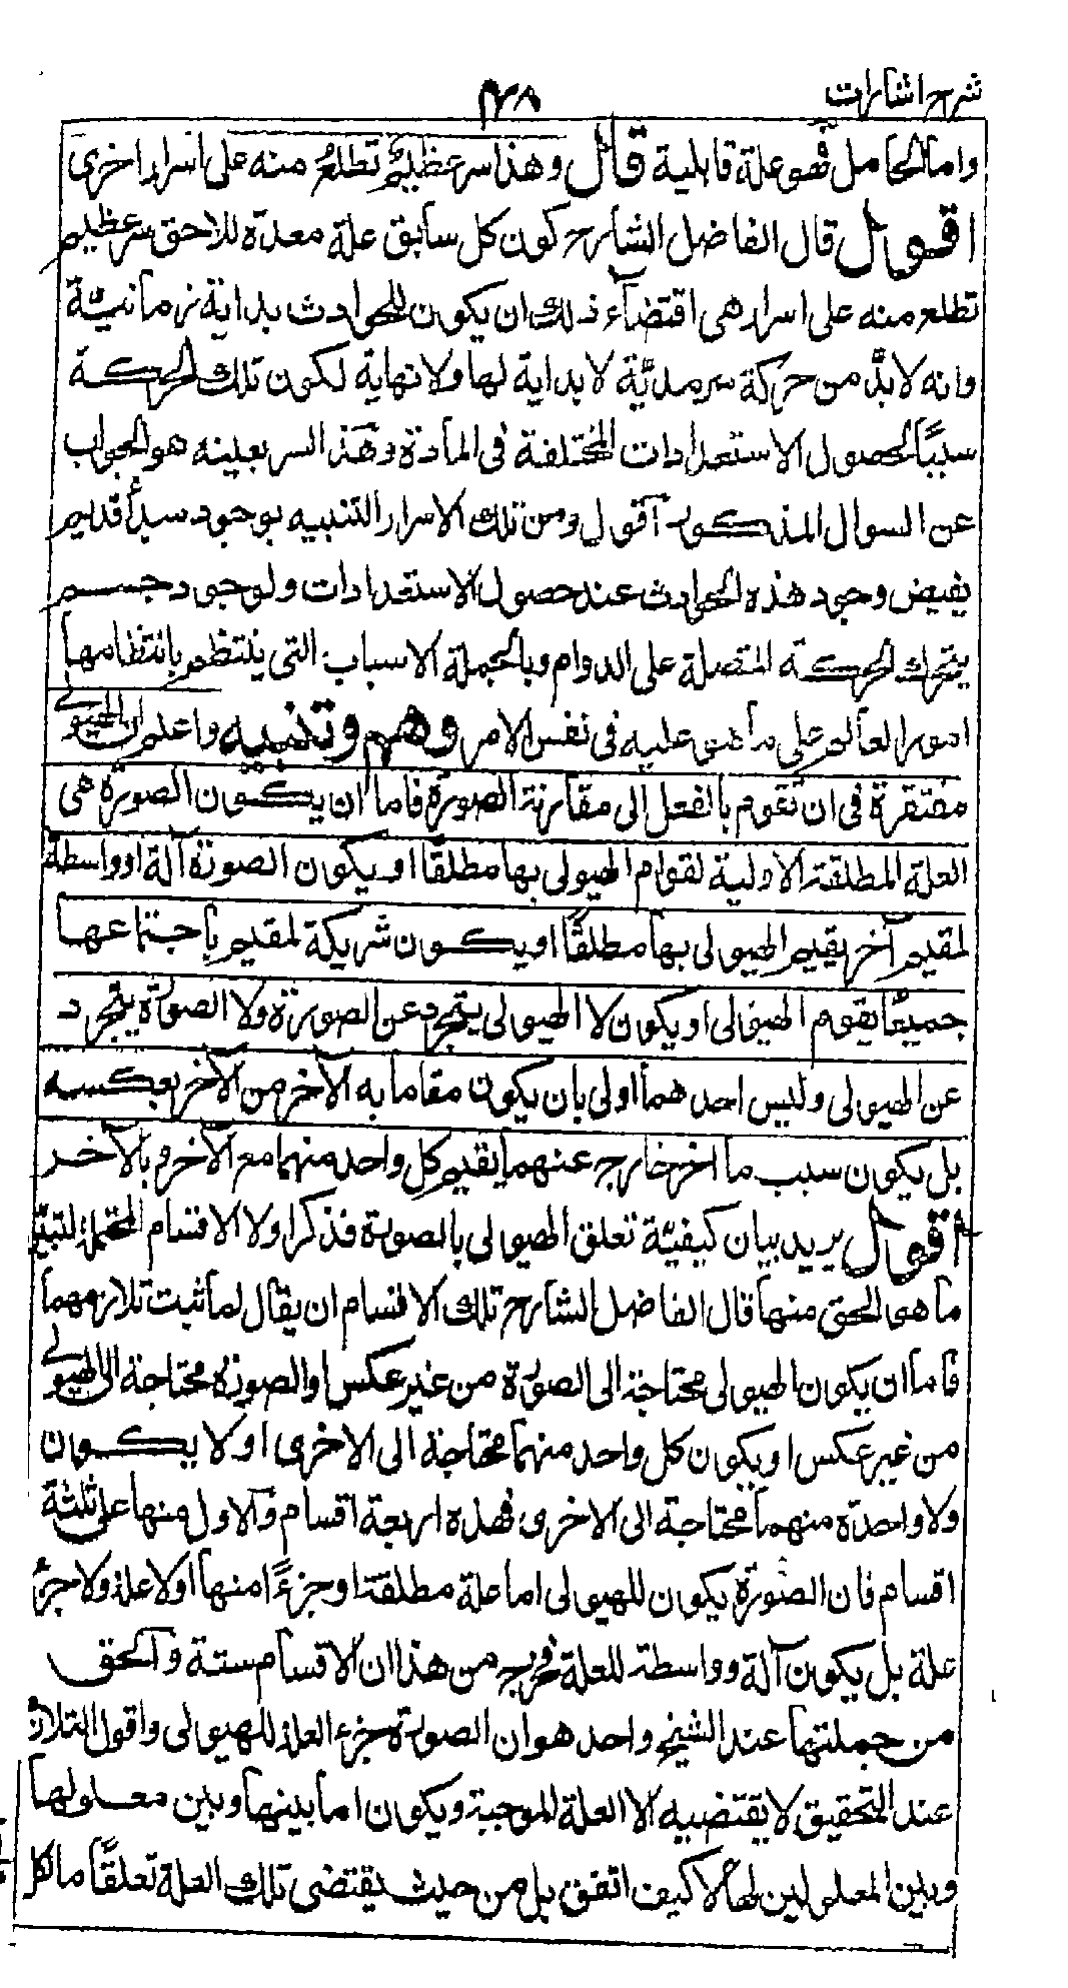 شرح اشارات
٣٨
واما الحامل فهو علة قابلية قال وهذا سر عظيم تطلع منه على اسرار اخرى
اقول قال الفاضل الشارح كون كل سابق علة معدة للاحق سر عظيم
تطلع منه على اسرار هى اقتضاء ذلك ان يكون للحوادث بداية زمانية
وانه لا بد من حركة سرمدية لا بداية لها ولا نهاية لكون تلك الحركة
سببا لحصول الاستعدادات المختلفة فى المادة وهذا السر بعينه هو الجواب
عن السوال المذكور اقول ومن تلك الاسرار التنبيه بوجود مبدأ قديم
يفيض وجود هذه الحوادث عند حصول الاستعدادات ولوجود جسم
يتحرك الحركة المتصلة على الدوام وبالجملة الاسباب التى ينتظم بانتظامها
امور العالم على ما هو عليه فى نفس الامر وهم وتنبيه واعلم ان الهيولى
مفتقرة فى ان تقوم بالفعل الى مقارنة الصورة فاما ان يكون الصورة هى
العلة المطلقة الاولية لقوام الهيولى بها مطلقا او يكون الصورة آلة او واسطة
لمقيم آخر يقيم الهيولى بها مطلقا او يكون شريكة لمقيم باجتماعها
جميعا يقوم الهيولى او يكون لا الهيولى يتجرد عن الصورة ولا الصورة يتجرد
عن الهيولى وليس احدهما اولى بان يكون مقاما به الآخر من الآخر بعكسه
بل يكون سبب ما اخر خارج عنهما يقيم كل واحد منهما مع الآخر و بالآخر
اقول يريد بيان كيفية تعلق الهيولى بالصورة فذكر اولا الاقسام المحتملة لتبيّن
ما هو الحق منها قال الفاضل الشارح تلك الاقسام ان يقال لما ثبت تلازمهما
فاما ان يكون الهيولى محتاجة الى الصورة من غير عكس او الصورة محتاجة الى الهيولى
من غير عكس او يكون كل واحد منهما محتاجة الى الاخرى او لا يكون
ولا واحدة منهما محتاجة الى الاخرى فهذه اربعة اقسام والاول منها على ثلثة
اقسام فان الصورة يكون للهيولى اما علة مطلقة او جزءا منها اولا علة ولا جزء
علة بل يكون آلة وواسطة للعلة فخرج من هذا ان الاقسام ستة والحق
من جملتها عند الشيخ واحد هو ان الصورة جزء العلة للهيولى واقول التلازم
عند التحقيق لا يقتضيه الا العلة الموجبة ويكون اما بينها وبين معلولها
وبين المعلولين لها لا كيف اتفق بل من حيث يقتضى تلك العلة تعلقا ما لكل